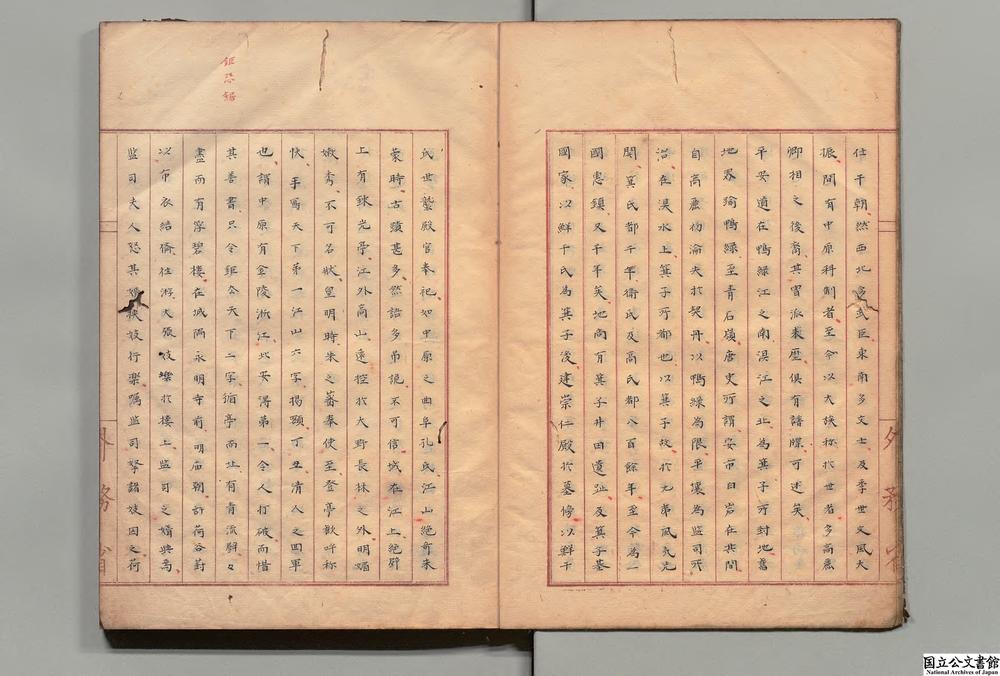 仕于朝然西北多武臣東南多文士及季世文風大
振間有中原科制者至今以大族称於世者多高麗
卿相之後裔其冒派来歷俱有譜牒可述矣
平安道在鴨綠江之南浿江之北為箕子所封地舊
地界踰鴨綠至青石嶺唐史所謂安市白岩在其間
自高麗初淪失於契丹以鴨綠為限平壤為監司所
治在浿水上箕子所都也以箕子故於九夷風氣先
開箕氏都千年衛氏及高氏都八百餘年至今為一
國重鎮又千年矣地尚有箕子井田遺址及箕子墓
國家以鮮于氏為箕子後建崇仁殿於墓傍以鮮于
外務省
鉅恐鋸
氏世襲殿官奉祀如中原之曲阜孔氏江山絶奇朱
蒙時古蹟甚多然語多弔詭不可信城在江上絶壁
上有錬光亭江外高山遠控於大野長林之外明媚
嫩秀不可名狀皇明時朱之蕃奉使至登亭歡呼称
快手寫天下第一江山六字揭額丁丑清人之回軍
也謂中原有金陵浙江此安得第一令人打破而惜
其善書只令鉅公天下二字循亭而北有青流壁々
盡而有浮碧楼在城隅永明寺前明庙朝許荷谷葑
以布衣結儔往游大張妓樂於楼上監司之婿與焉
監司夫人怒其婿挾妓行樂嘱監司拏詔妓因之荷
外務省
国立公文書館
National Archives of Japan